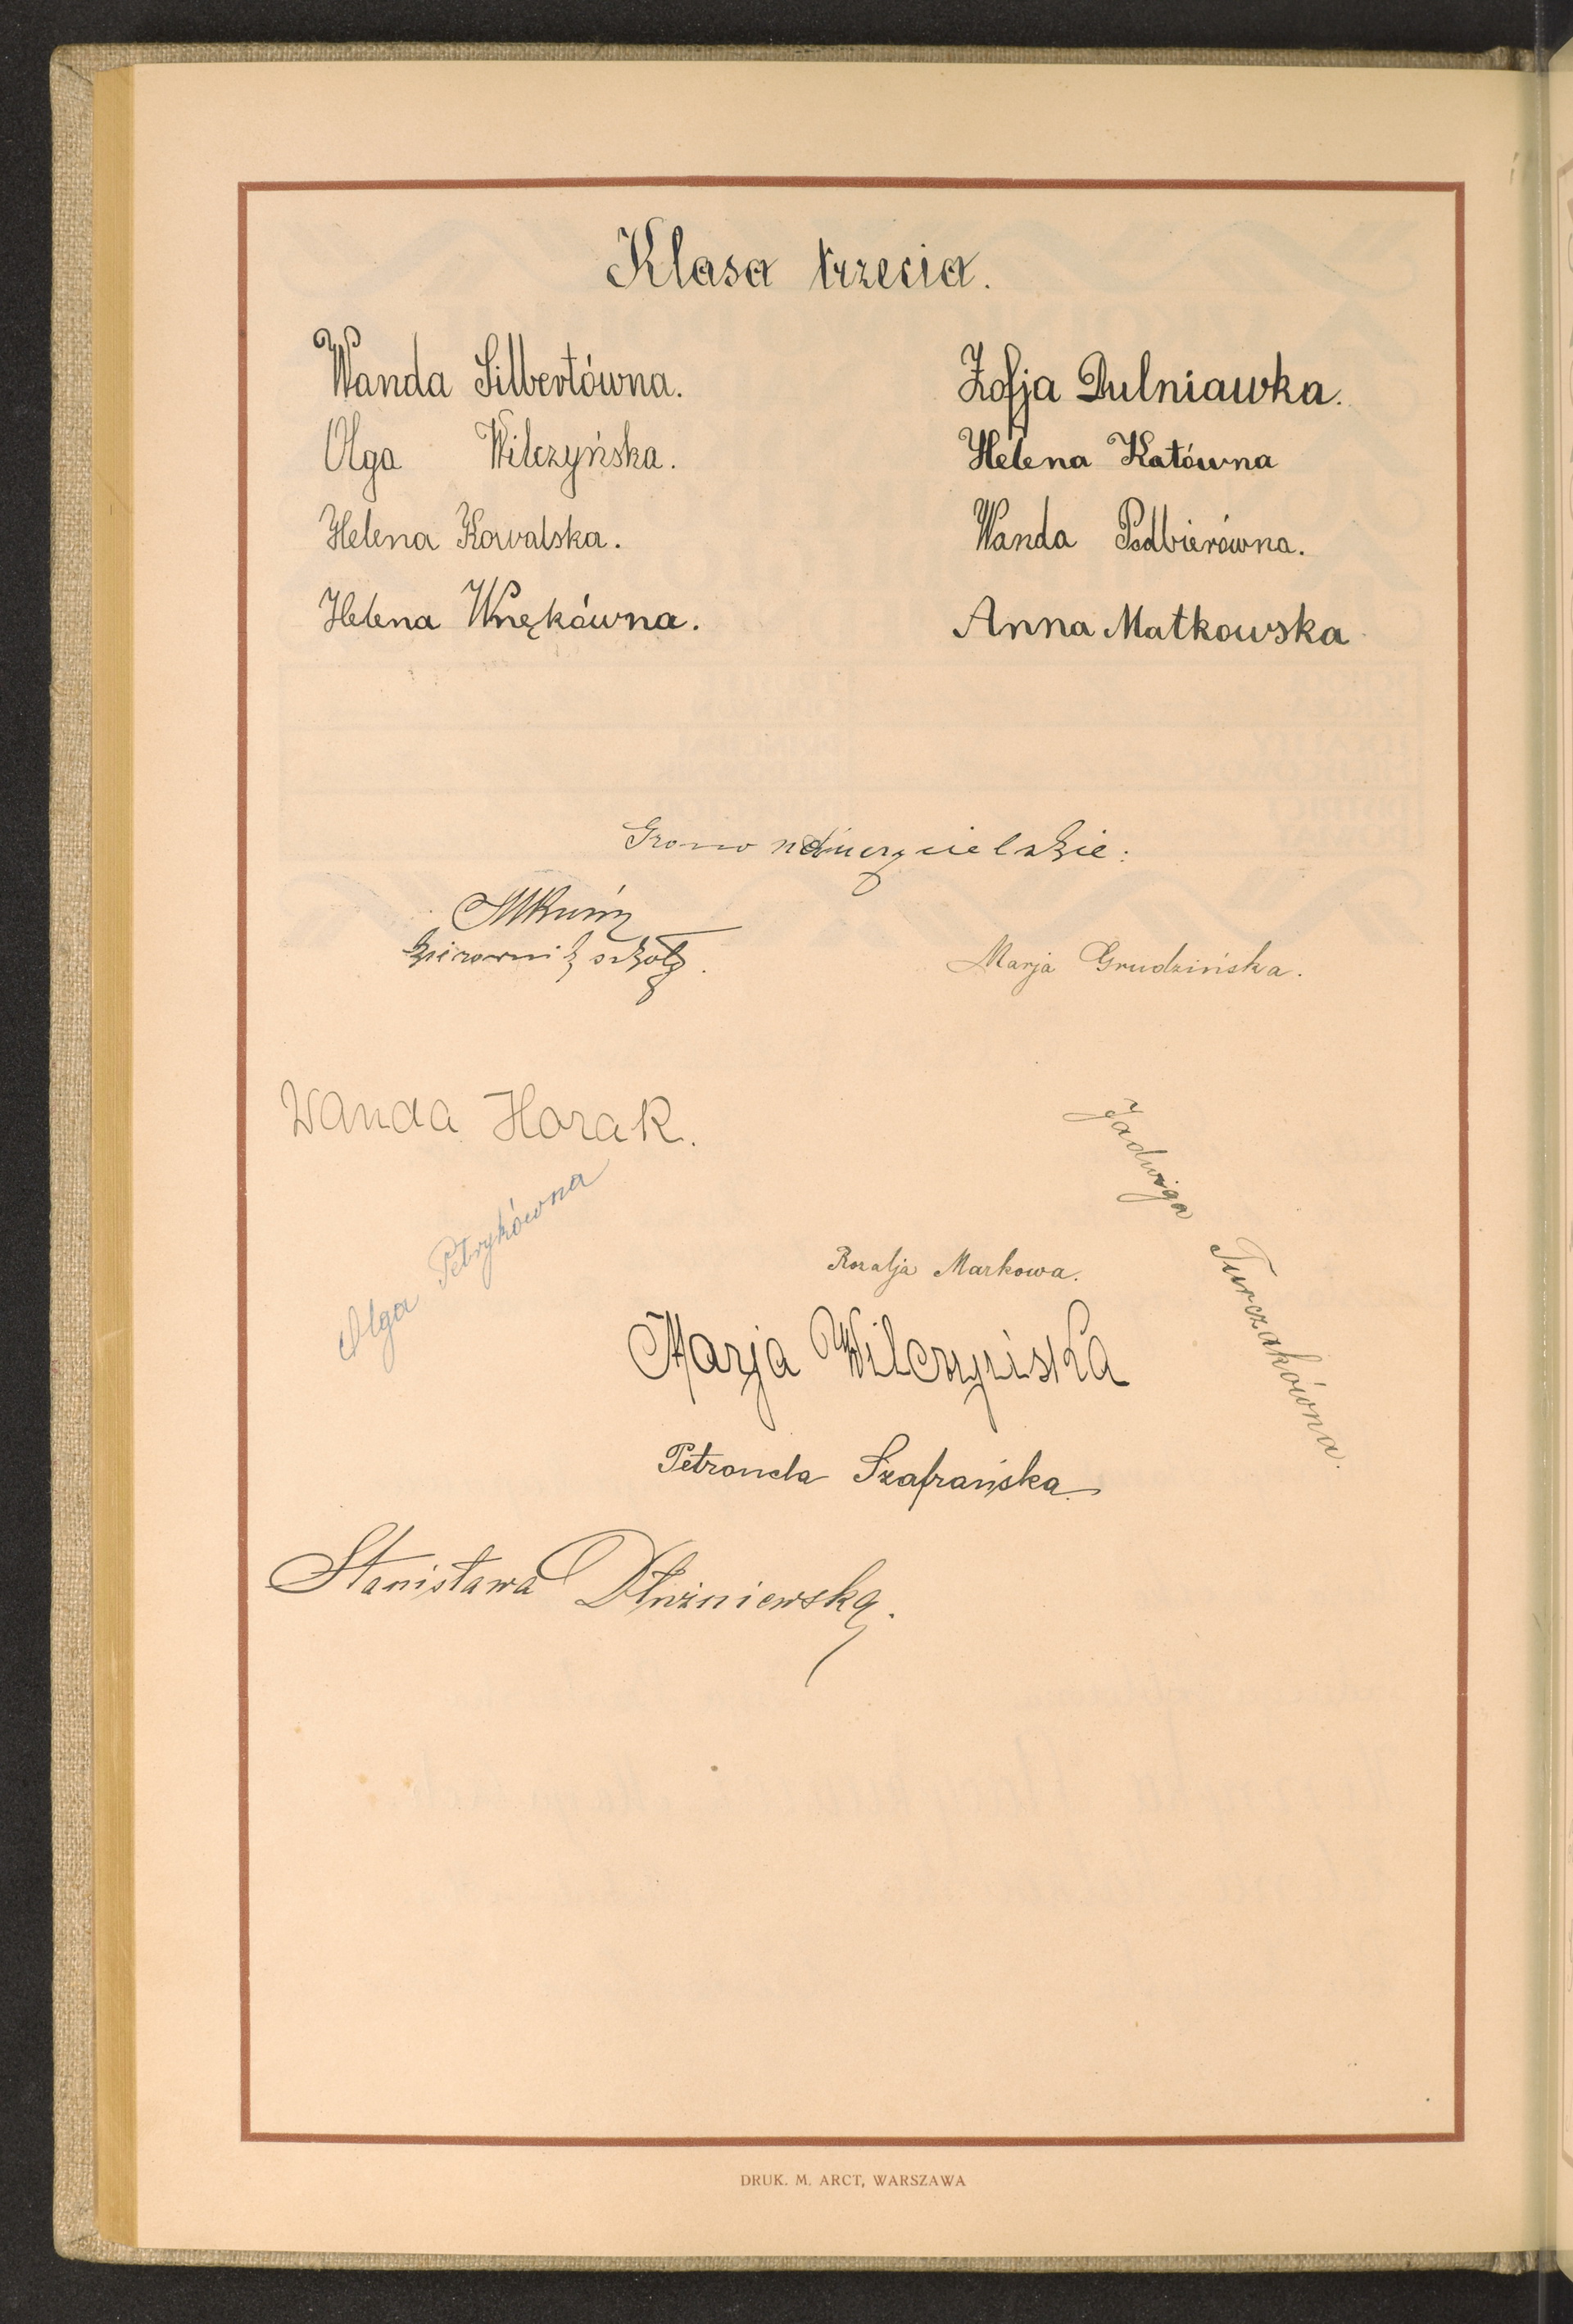 Klasa trzecia.
Wanda Silbertówna.
Olga Wilczyńska.
Helena Kowalska.
Helena Wnękówna.
Zofja Dulniawka.
Helena Katówna
Wanda Podbierówna.
Anna Matkowska
Grono nauczycielskie:
kierownik szkoły.
Marja Grudzińska.
Wanda Horak.
Jadwiga Turczakówna.
Olga Petrykówna
Rozalja Markowa.
Marja Wilczyńska
Petronela Szafrańska
Stanisława Dłużniewska.
DRUK. M. ARCT, WARSZAWA